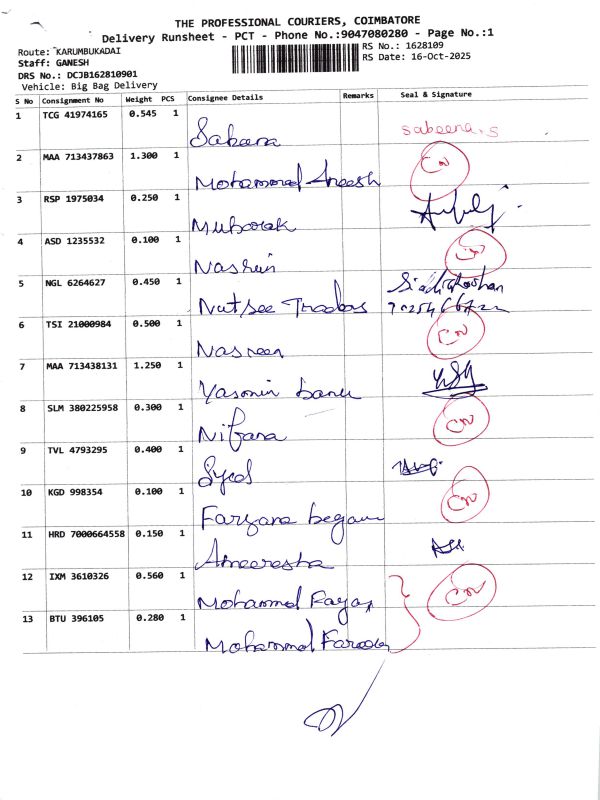 THE PROFESSIONAL COURIERS, COIMBATORE
Delivery Runsheet - PCT - Phone No.:9047080280 - Page No.:1
Route: KARUMBUKADAI
RS No.: 1628109
Staff: GANESH
RS Date: 16-Oct-2025
DRS No.: DCJB162810901
Vehicle: Big Bag Delivery
S No Consignment No Weight PCS Consignee Details Remarks Seal & Signature
1 TCG 41974165 0.545 1
Sabeena sabeena.s
2 MAA 713437863 1.300 1 CN
Mohammed Aneesh
3 RSP 1975034 0.250 1
Mubarak
4 ASD 1235532 0.100 1 CN
Nasrin
5 NGL 6264627 0.450 1
Traders
6 TSI 21000984 0.500 1 CN
Nasreen
7 MAA 713438131 1.250 1
Yasmin banu
8 SLM 380225958 0.300 1 CN
Nifana
9 TVL 4793295 0.400 1
Syed
10 KGD 998354 0.100 1 CN
Farzana begam
11 HRD 7000664558 0.150 1
Ameeresha
12 IXM 3610326 0.560 1 CN
Mohammed Fayaz
13 BTU 396105 0.280 1
Mohammed Farook